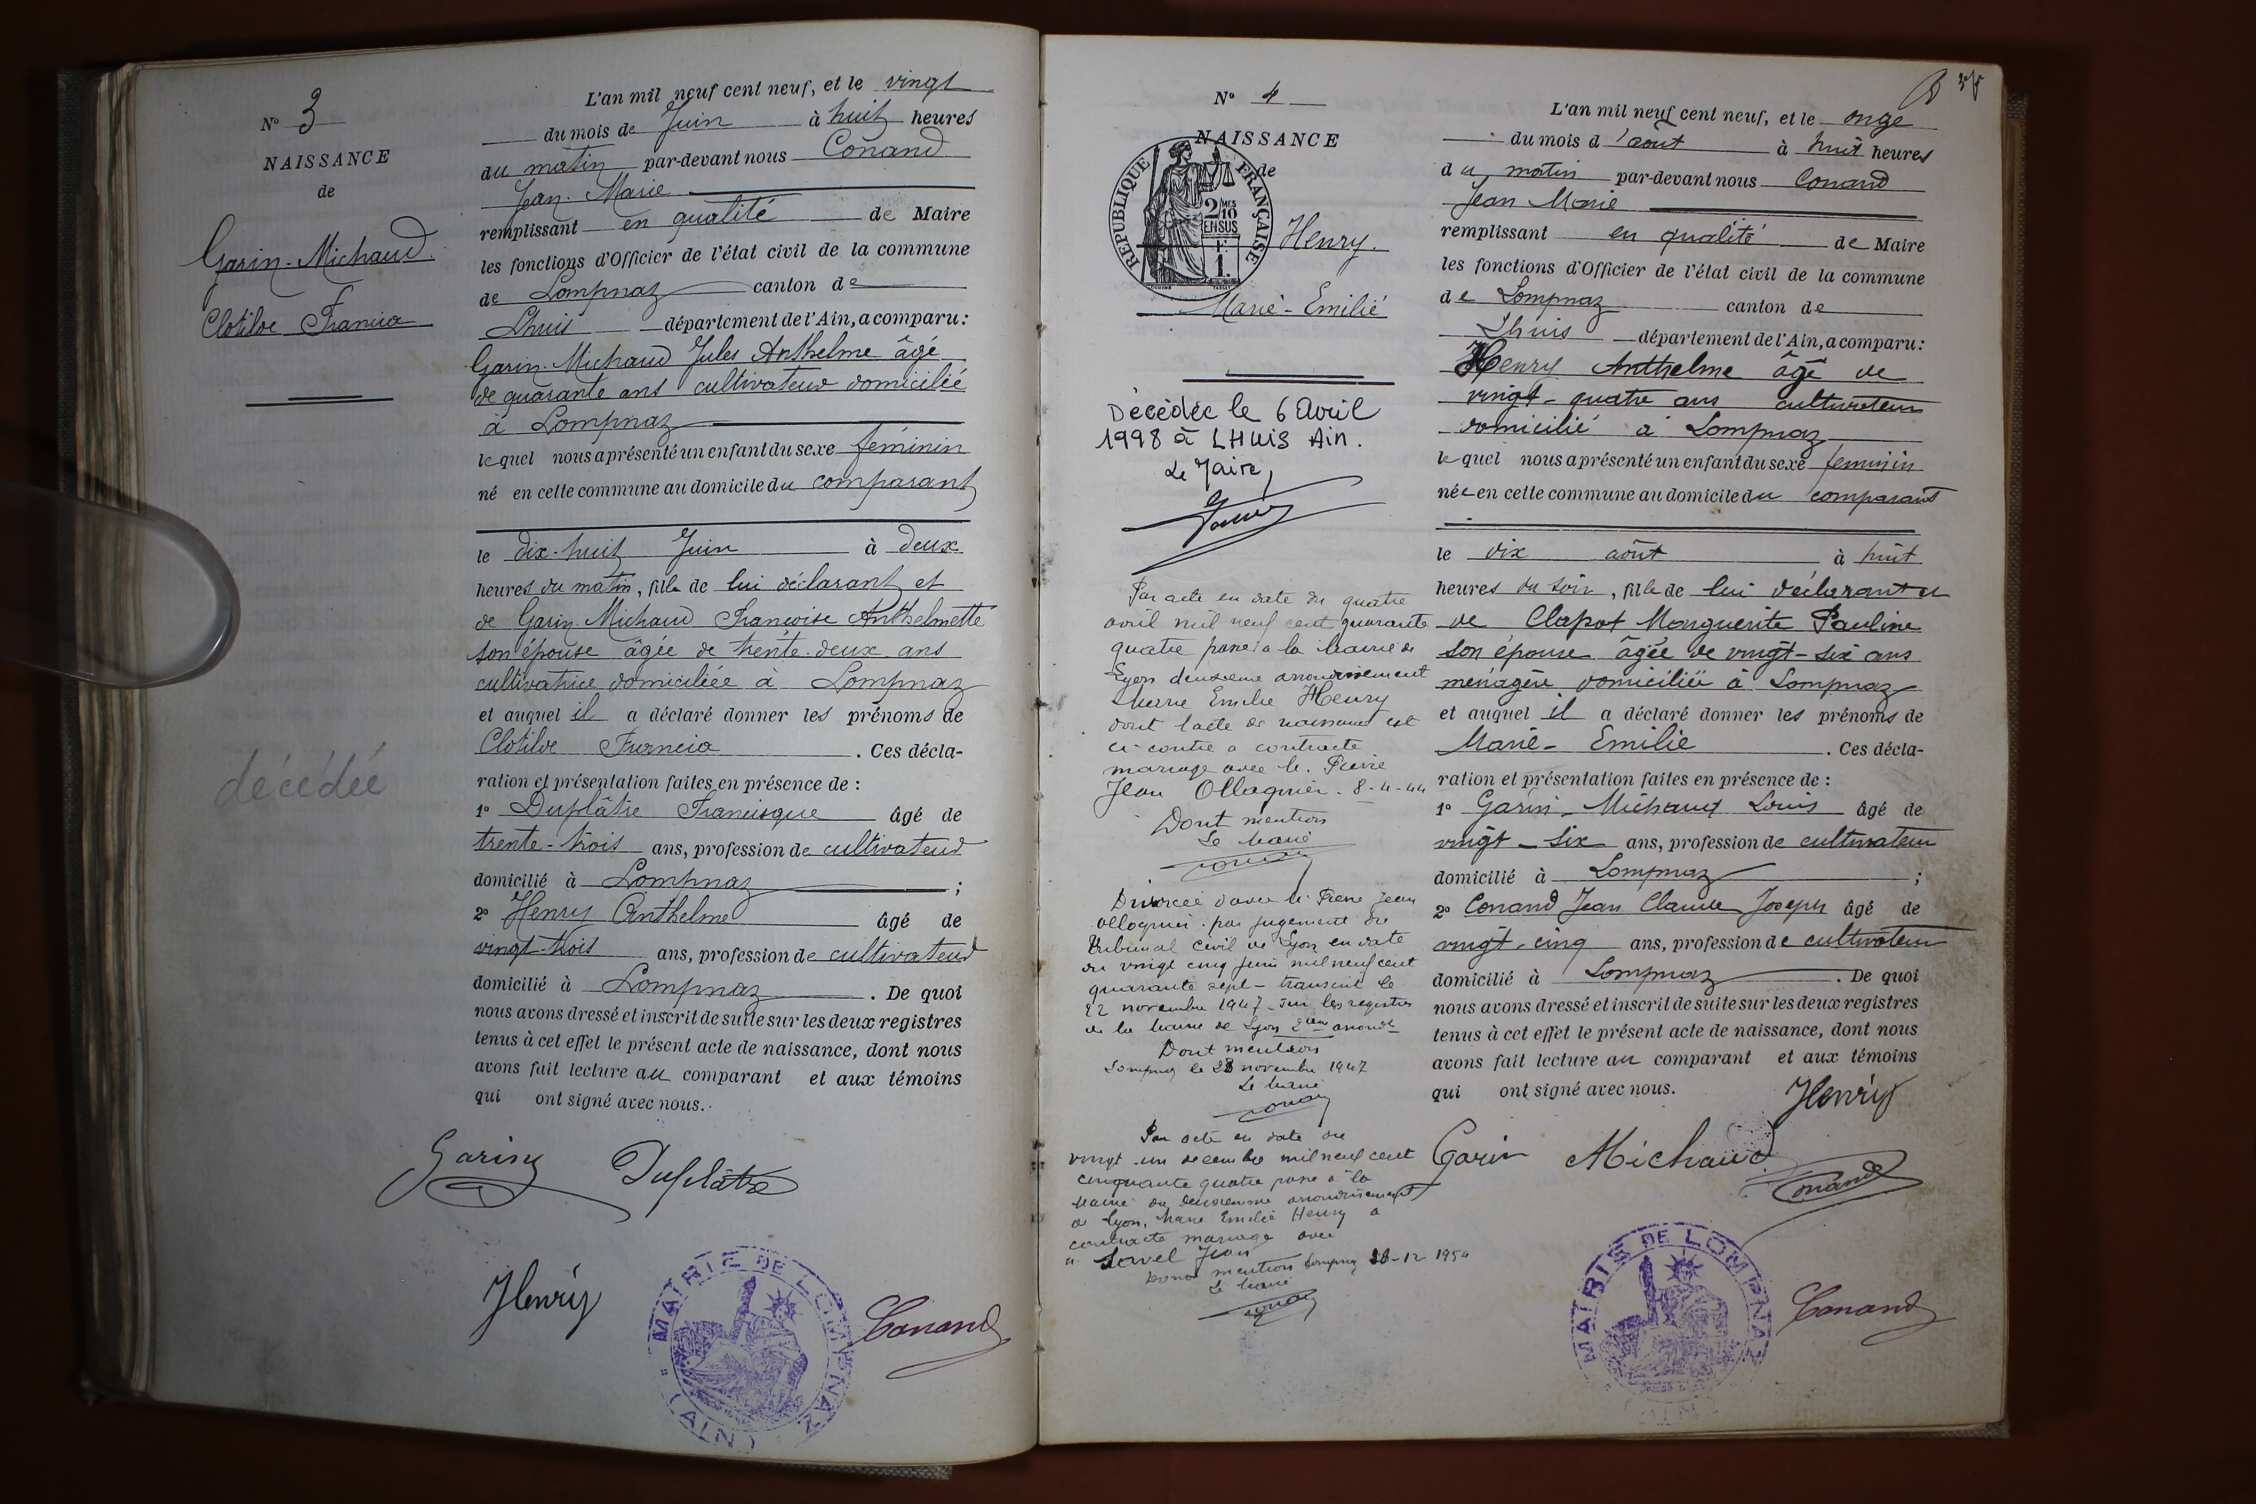 N° 3
NAISSANCE
de
Garin-Michaud
Clotilde Francia
décédée
L'an mil neuf cent neuf, et le vingt
du mois de Juin à huit heures
du matin par-devant nous Conand
Jean-Marie
remplissant en qualité de Maire
les fonctions d'Officier de l'état civil de la commune
de Lompnaz canton de
Lhuis département de l'Ain, a comparu :
Garin-Michaud Jules Anthelme âgé
de quarante ans cultivateur domicilié
à Lompnaz
lequel nous a présenté un enfant du sexe féminin
né en cette commune au domicile du comparant
le dix-huit Juin à deux
heures du matin, fille de lui déclarant et
de Garin-Michaud Françoise Anthelmette
son épouse âgée de trente-deux ans
cultivatrice domiciliée à Lompnaz
et auquel il a déclaré donner les prénoms de
Clotilde Francia. Ces décla-
ration et présentation faites en présence de :
1° Duplâtre Francisque âgé de
trente-trois ans, profession de cultivateur
domicilié à Lompnaz ;
2° Henry Anthelme âgé de
vingt-trois ans, profession de cultivateur
domicilié à Lompnaz. De quoi
nous avons dressé et inscrit de suite sur les deux registres
tenus à cet effet le présent acte de naissance, dont nous
avons fait lecture au comparant et aux témoins
qui ont signé avec nous.
Garin Duplâtre
Henry
MAIRIE DE LOMPNAZ
(AIN)
Conand
N° 4
NAISSANCE
de
RÉPUBLIQUE FRANÇAISE
2/10 EN SUS
1 F.
Henry
Marie-Emilie
Décédée le 6 Avril
1998 à LHUIS Ain.
Le Maire,
Par acte en date du quatre
avril mil neuf cent quarante
quatre passé à la Mairie de
Lyon deuxième arrondissement
Marie Emilie Henry
dont l'acte de naissance est
ci-contre a contracté
mariage avec Mr. Pierre
Jean Ollagnier. 8-4-44
Dont mention
Le Maire
Conand
Divorcée d'avec Mr Pierre Jean
Ollagnier par jugement du
Tribunal civil de Lyon en date
du vingt cinq juin mil neuf cent
quarante sept - transcrit le
22 novembre 1947 - sur les registres
de la Mairie de Lyon 2ème arrondt
Dont mention
Lompnaz le 28 novembre 1947
Le Maire
Conand
Par acte en date du
vingt-un décembre mil neuf cent
cinquante quatre passé à la
Mairie du deuxième arrondissement
de Lyon, Marie Emilie Henry a
contracté mariage avec
Jean
Dont mention Lompnaz -12 1954
Le Maire
Conand
L'an mil neuf cent neuf, et le onze
du mois d'août à huit heures
du matin par-devant nous Conand
Jean Marie
remplissant en qualité de Maire
les fonctions d'Officier de l'état civil de la commune
de Lompnaz canton de
Lhuis département de l'Ain, a comparu :
Henry Anthelme âgé de
vingt-quatre ans cultivateur
domicilié à Lompnaz
lequel nous a présenté un enfant du sexe féminin
née en cette commune au domicile du comparant
le dix août à huit
heures du soir, fille de lui déclarant et
de Clapot Marguerite Pauline
son épouse âgée de vingt-six ans
ménagère domiciliée à Lompnaz
et auquel il a déclaré donner les prénoms de
Marie-Emilie. Ces décla-
ration et présentation faites en présence de :
1° Garin-Michaud Louis âgé de
vingt-six ans, profession de cultivateur
domicilié à Lompnaz ;
2° Conand Jean Claude Joseph âgé de
vingt-cinq ans, profession de cultivateur
domicilié à Lompnaz. De quoi
nous avons dressé et inscrit de suite sur les deux registres
tenus à cet effet le présent acte de naissance, dont nous
avons fait lecture au comparant et aux témoins
qui ont signé avec nous.
Henry
Garin Michaud
Conand
MAIRIE DE LOMPNAZ
(AIN)
Conand